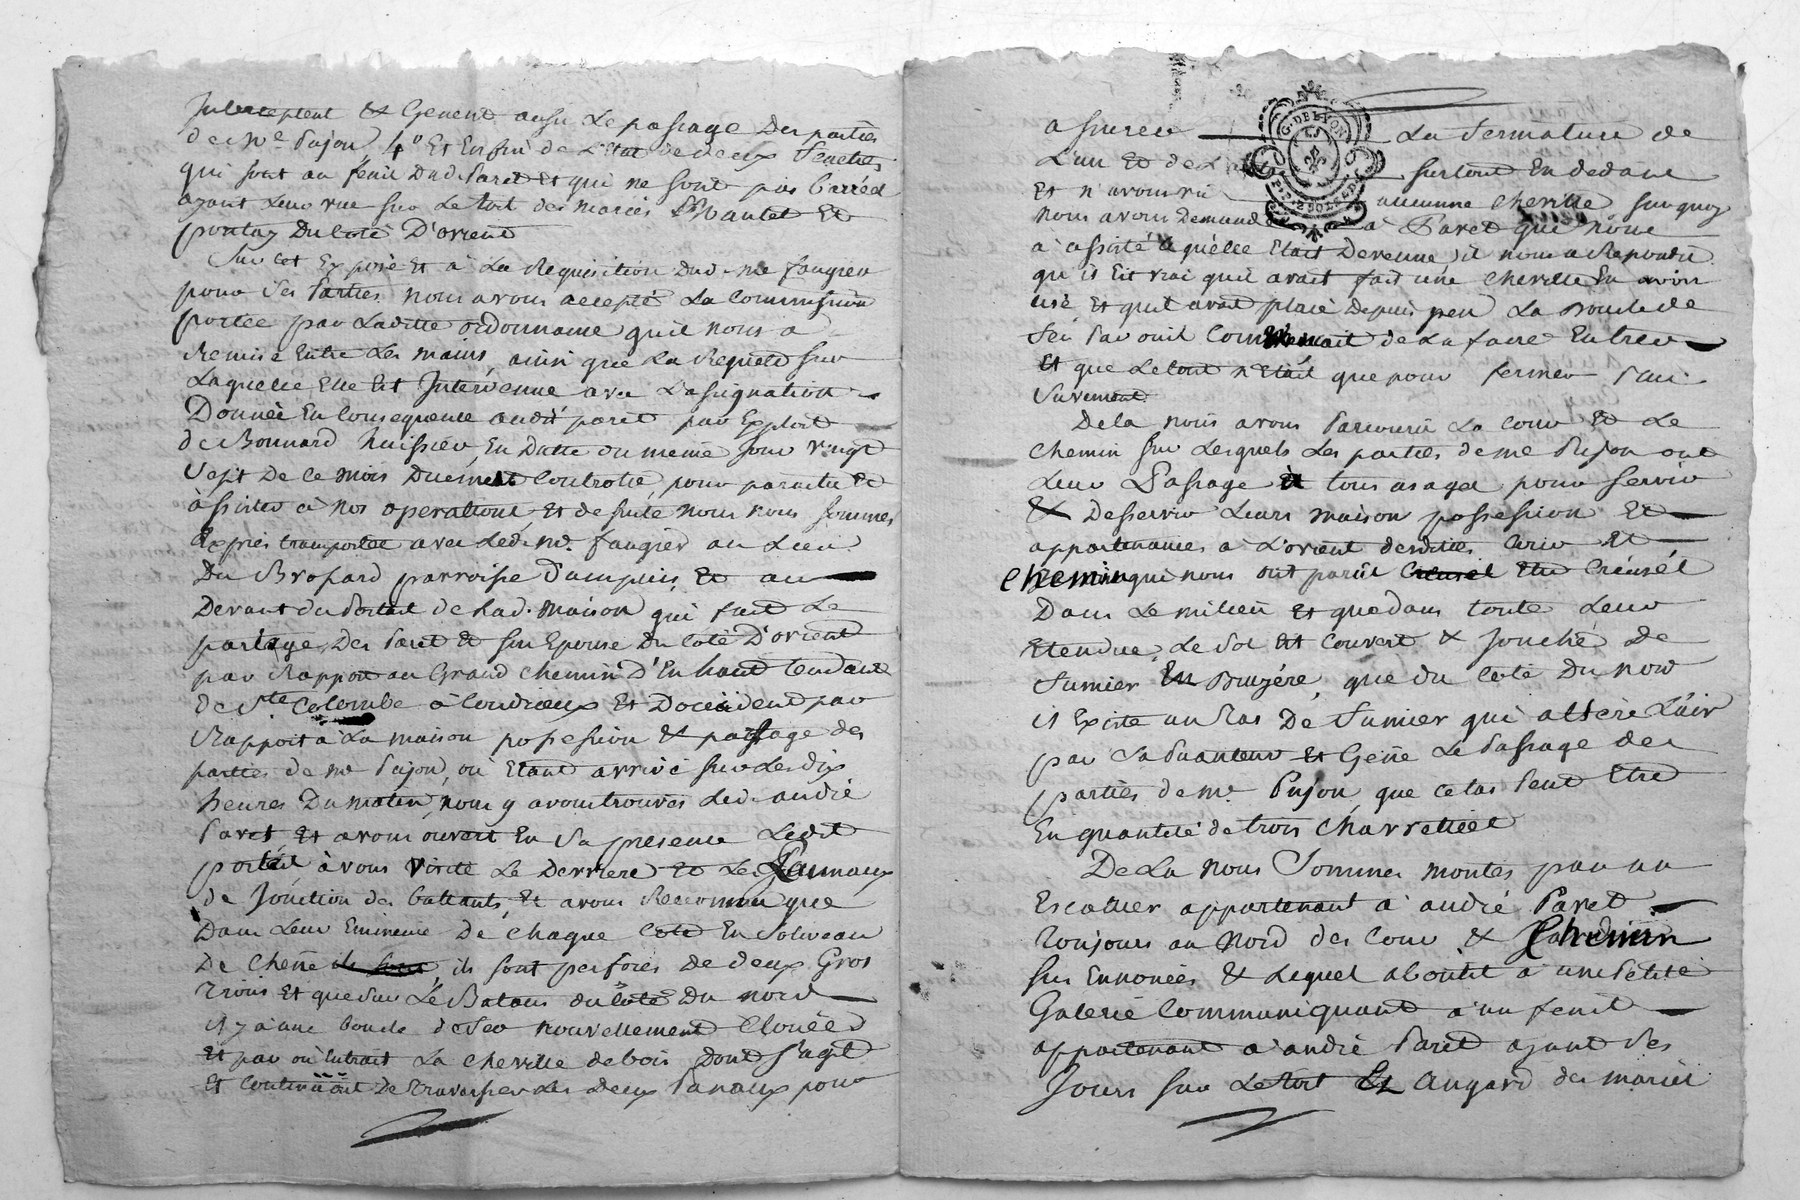 Interceptent & Genent aussi Le passage Des parties
de me Pujon 4o Et Enfin de L'Etat de deux fenetres
qui sont au fenil Dud. Paret Et qui ne sont pas barrées
ayant Leur vue sur Le toit des mariés Et
Du Coté D'orient
Sur Cet Exposé Et à La Requisition Dud. me faugier
pour Ses Parties nous avons accepté La Commission
portée par Laditte ordonnance qu'il nous a
Remise Entre Les mains, ainsi que La Requete sur
Laquelle Elle Est Intervenue avec L'assignation
Donnée En Consequence audit paret par Exploit
de Bonnard huissier En Datte du meme jour vingt
Sept De Ce mois Duement Controllé, pour paroitre Et
assister à nos operations, Et de suite nous nous sommes
Exprès transportée avec Led. me. faugier au Lieu
Du Brossard parroisse D'ampuis, Et au
Devant du Portail de Lad. maison qui fait Le
partage Des Paret Et son Epouse Du Coté D'orient
par Rapport au Grand Chemin D'En haut tendant
de Ste Colombe à Condrieux Et D'occident par
Rapport à La maison possession & passage des
parties de me Pujon, où Etant arrivé sur Les dix
heures Du matin, nous y avons trouvés Led. andré
Paret Et avons ouvert En Sa presence Ledit
portail avons visité Le Derriere Et Les Paunaux
de Jonction des battants, Et avons Reconnu que
Dans Leur Eminence De Chaque Coté En Soliveau
De Chene ils sont perforés De deux Gros
Trous Et que sur Le Batans du Coté Du nord
il y a une boucle de Fer nouvellement Clouée
Et par où Entrait La Cheville de bois Dont S'agit
Et Continuait De Traverser Les deux Panaux pour
assurer La fermature de
L'un Et de L surtout En dedans
Et n'avons vu aucunne Cheville Surquoy
nous avons Demandé à Paret que nous
a assisté qu'elle Etait Devenue, il nous a Repondu
qu'il Est vrai qu'il avait fait une Cheville En avoir
usé Et qu'il avait placé Depuis peu La boucle de
Fer Par ou il Convenait de La faire Entrer
Et que Le tout n'Etait que pour fermer Plus
Surement.
De la nous avons Parcouru La Cour Et Le
Chemin sur Lesquels Les parties de me Pujon ont
Leur Passage Et tous usages pour Servir
& Desservir Leurs maison possession Et
appartenances à L'orient desdittes Cour Et
Chemin qui nous ont paru Creusel Etre Creusél
Dans Le milieu Et que dans toute Leur
Etendue, Le Sol Est Couvert & Jonché De
fumier En Bruyére, que du Coté Du nord
il Existe un Tas De fumier qui altere L'air
par Sa Puanteur Et Gene Le Passage des
parties de me. Pujon, que Ce tas Peut Etre
En quantité de trois Charrettées
De La nous Sommes montés par un
Escallier appartenant a andré Paret
Toujours au Nord des Cour & Chemin
sus Ennoncés & Lequel aboutit a une Petite
Galerie Communiquant à un fenil
appartenant a andré Paret ayant Ses
Jours sur Le toit Et Angard des mariés